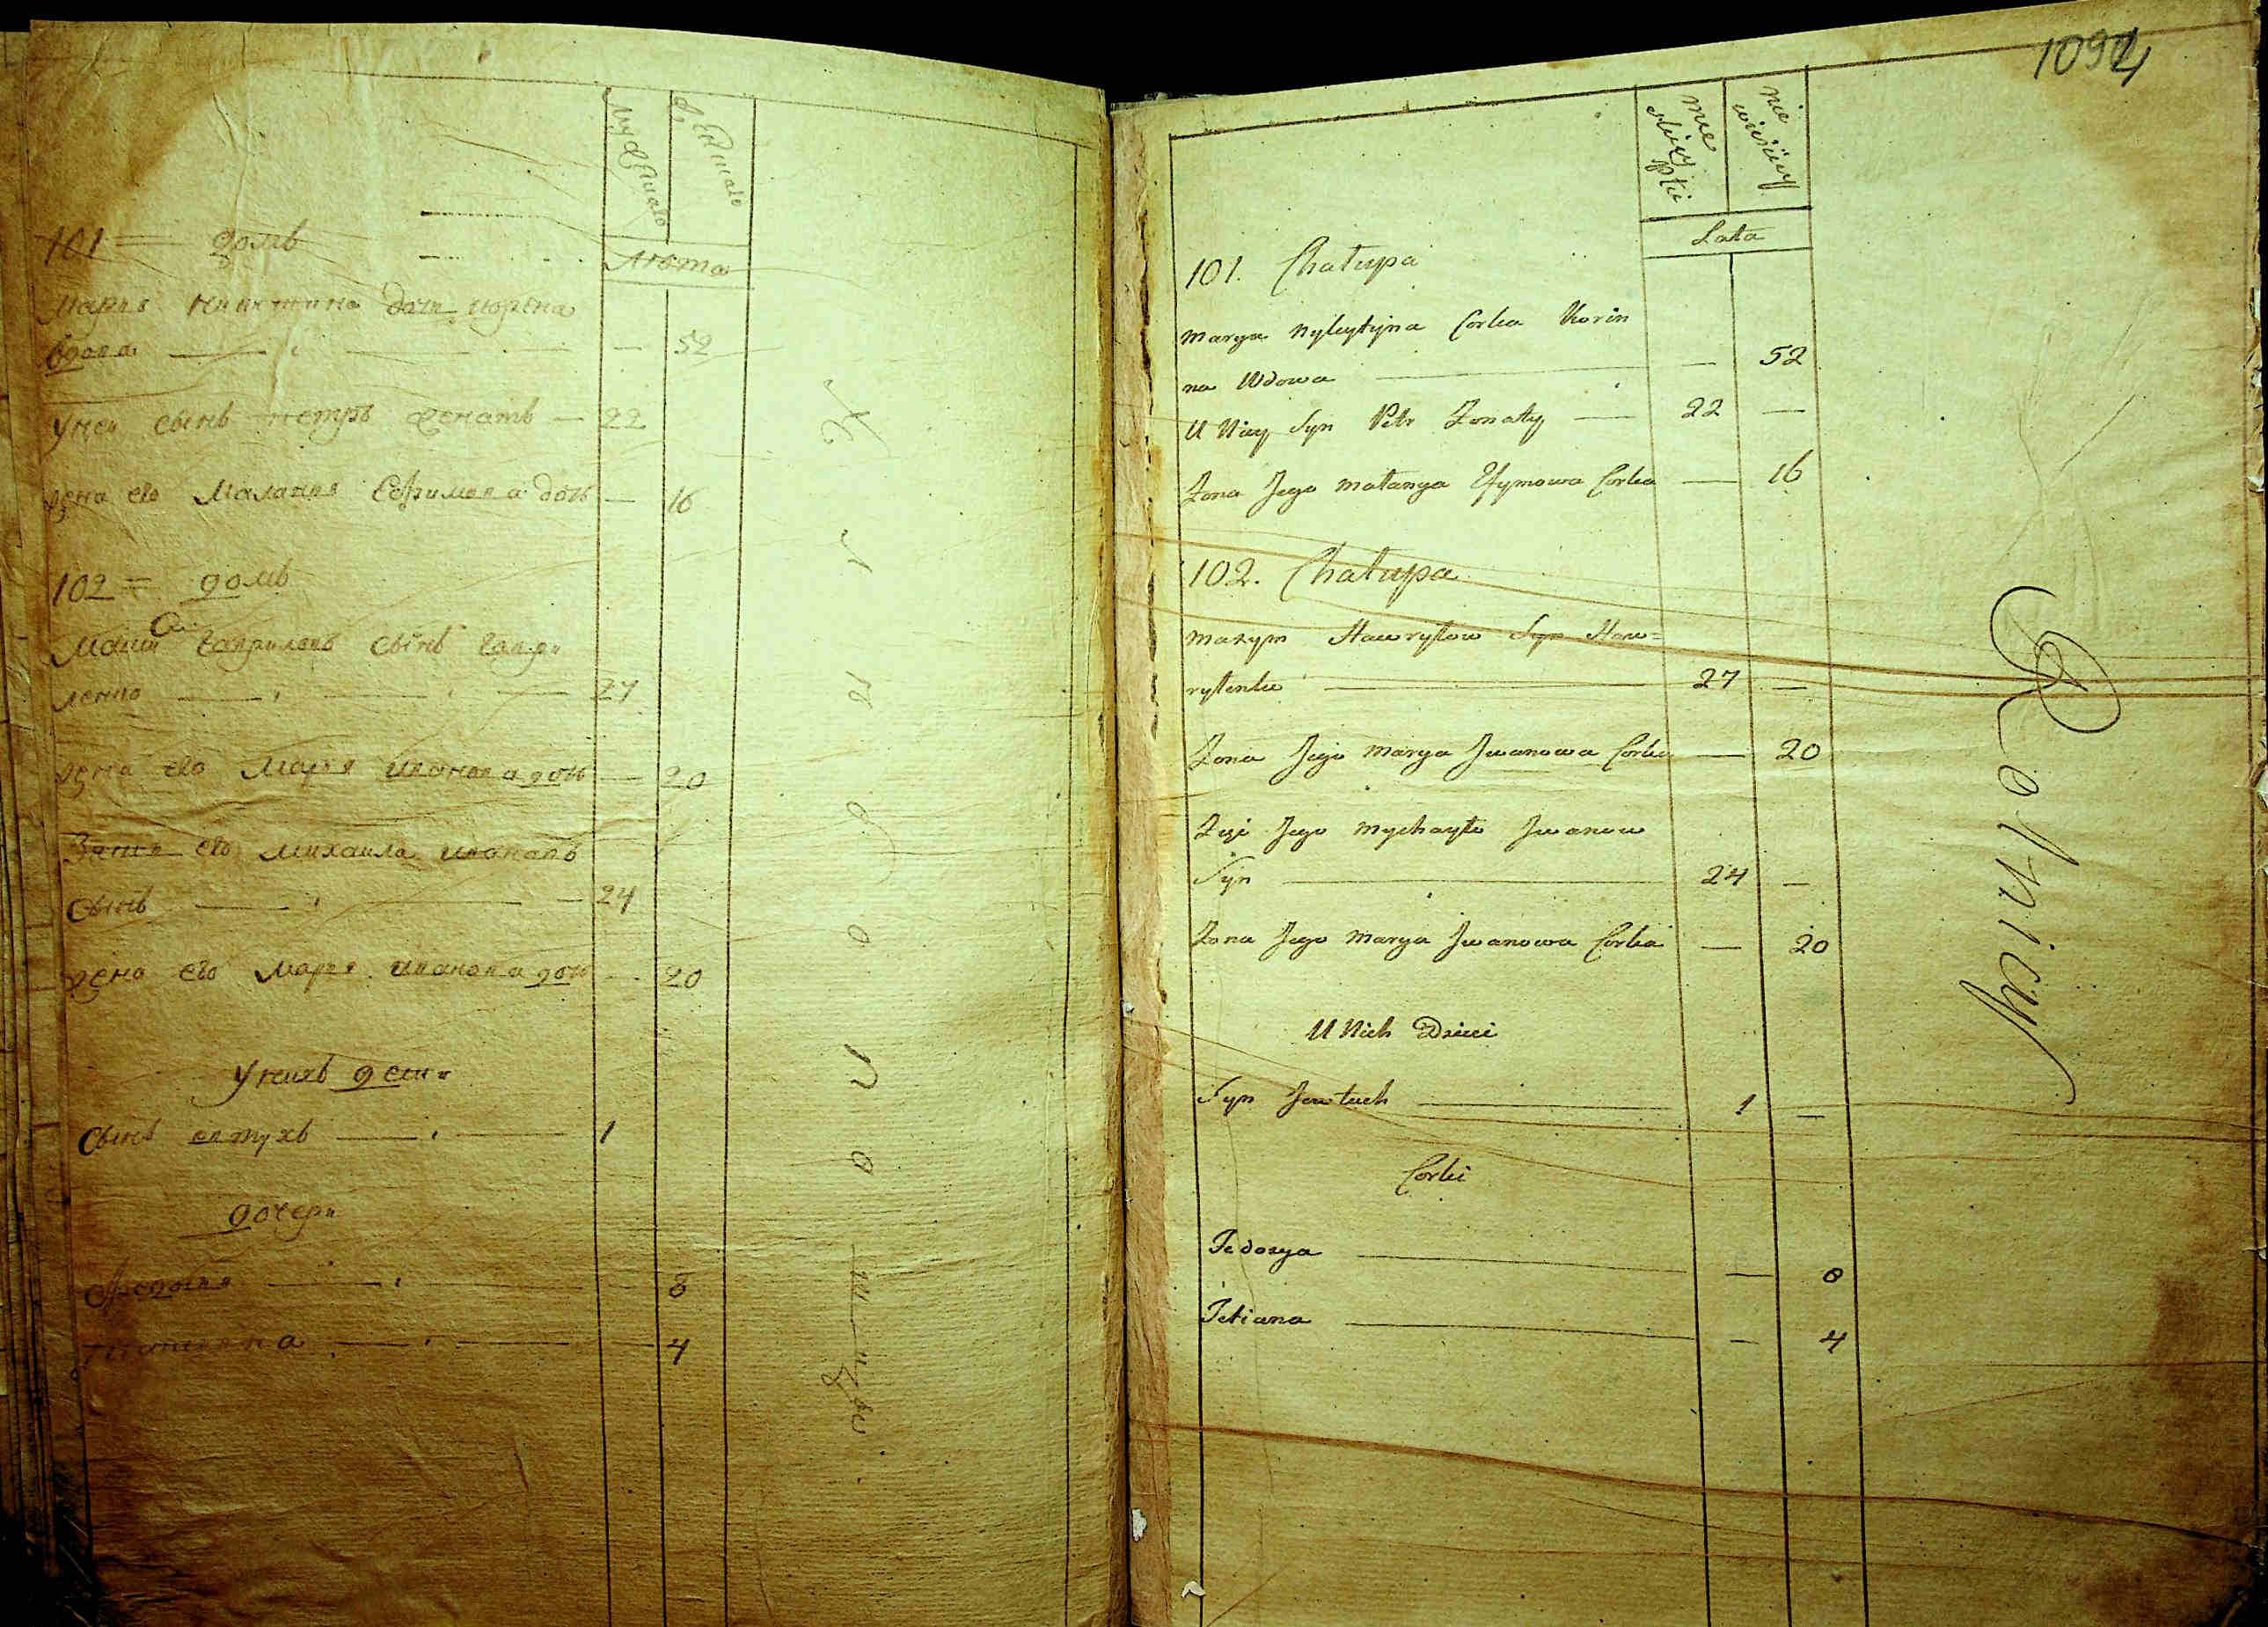 Мужеска
Женска
Лѣта
101 = домъ
Марія никитина дочь корѣна
вдова — — — 52
унеи сынъ петръ женатъ — 22
жена его Маланья Ефимова дочь — 16
102 = домъ
Максим гаврилов сынъ гаври
ленко — — — 27
жена его Марья иванова дочь — 20
Зять его михаила иванов
сынъ — — — 24
жена его марья иванова дочь — 20
у нихъ дети
Сынъ евтухъ — — 1
дочери
Федосья — — — 8
татияна — — — 4
1094
mę
skiey
płci
nie
wieściey
Lata
101. Chałupa
Marya Nykytyna Corka Korin
na Wdowa — — 52
U Niey Syn Petr Żonaty — 22 —
Żona Jego Małanya Efymowa Corka — 16
102. Chałupa
Maxym Hawryłow Syn Haw=
ryłenko — 27 —
Żona Jego Marya Jwanowa Corka — 20
Zięć Jego Mychayło Jwanow
Syn — 24 —
Żona Jego Marya Jwanowa Corka — 20
U Nich Dzieci
Syn Jewtuch — 1 —
Corki
Fedosya — — 8
Tetiana — — 4
Rolnicy